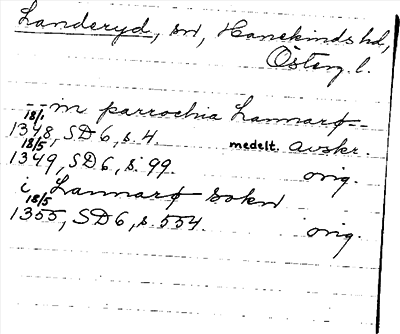 Landeryd, sn, Hanekinds hd,
Österg. l.
-- in parrochia Lannarø --
18/1 1348, SD 6, s. 4. medelt. avskr.
18/5 1349, SD 6, s. 99. orig.
i Lannarø sokn
18/5 1355, SD 6, s. 554. orig.